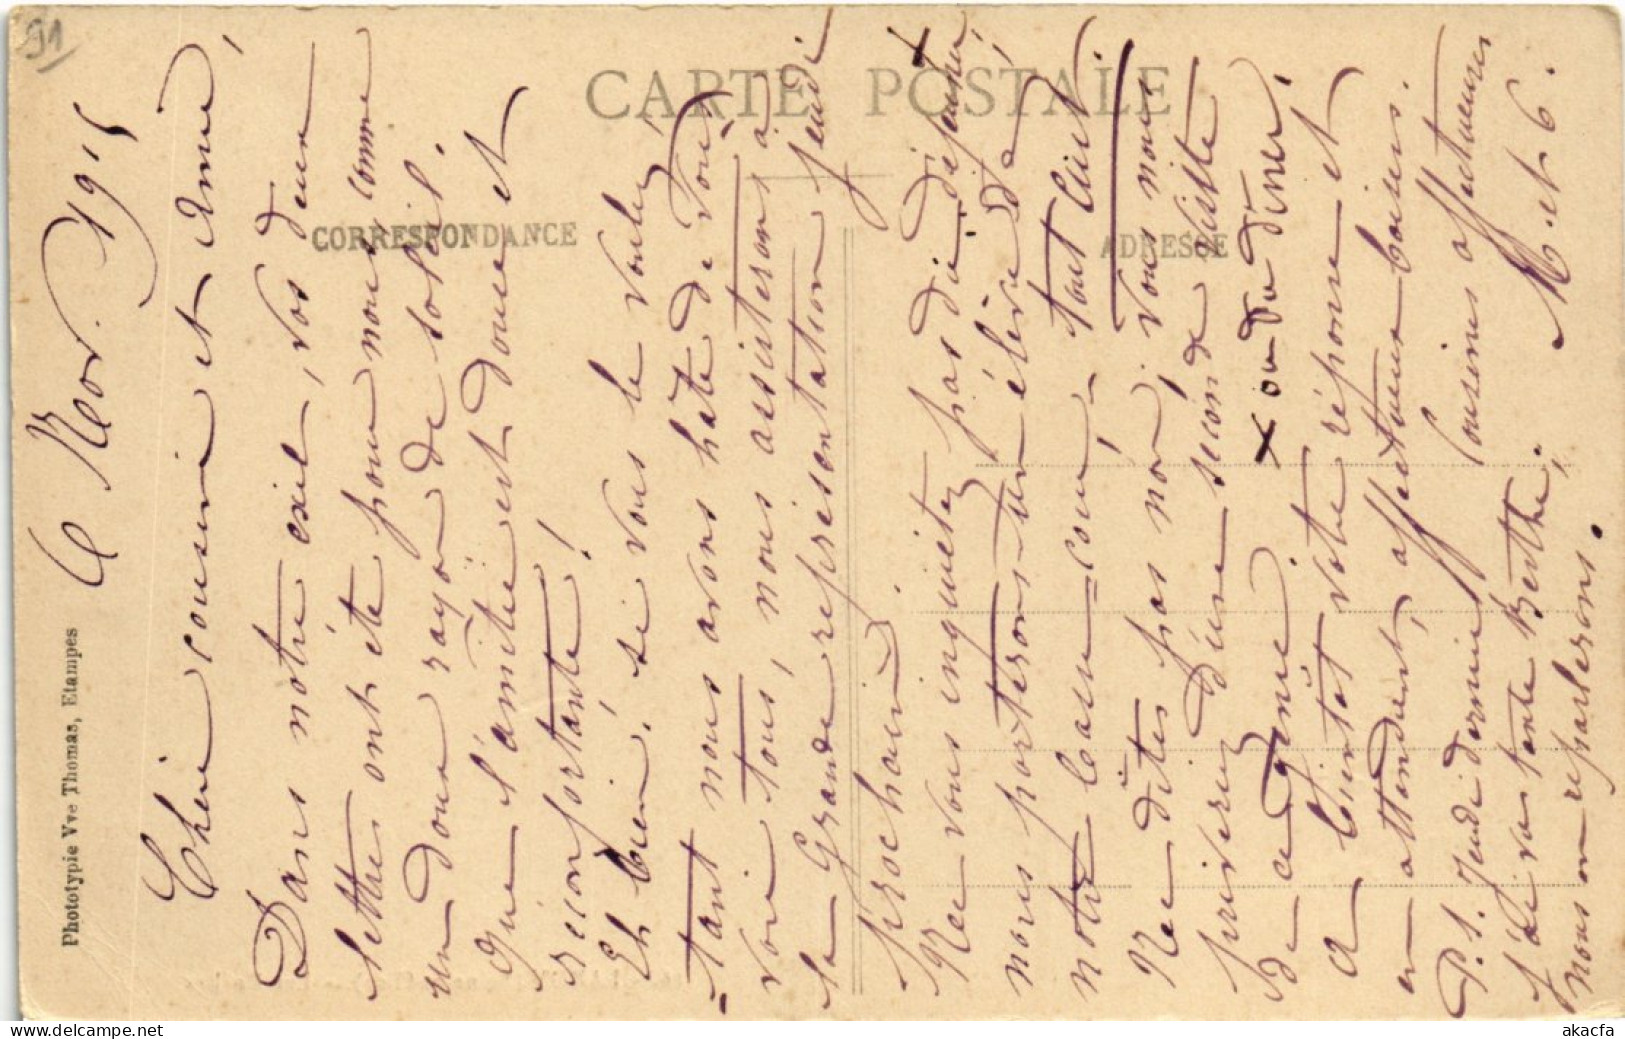 91
CARTE POSTALE
CORRESPONDANCE
ADRESSE
Phototypie Vve Thomas, Etampes
6 Nov. 1915
Cher cousin et Amie,
Dans notre exil, vos deux
lettres ont été pour nous comme
un doux rayon de soleil.
Que l'amitié est douce et
reconfortante!
Eh bien, si vous le voulez,
tant nous avons hâte de vous
voir tous, nous assisterons à
la Grande représentation jeudi
prochain.
Ne vous inquietez pas du déjeuner x
nous porterons un élève de
notre basse-cour, tout cuit.
Ne dites pas non, vous nous
priveriez d'une seconde visite
de ce genre x ou du diner,
A bientôt votre réponse et
en attendant, affectueux baisers.
Cousines affectueuses
M. et G.
P.S. Jeudi dernier
j'ai vu tante Berthe;
nous en reparlerons.
akacfa
www.delcampe.net